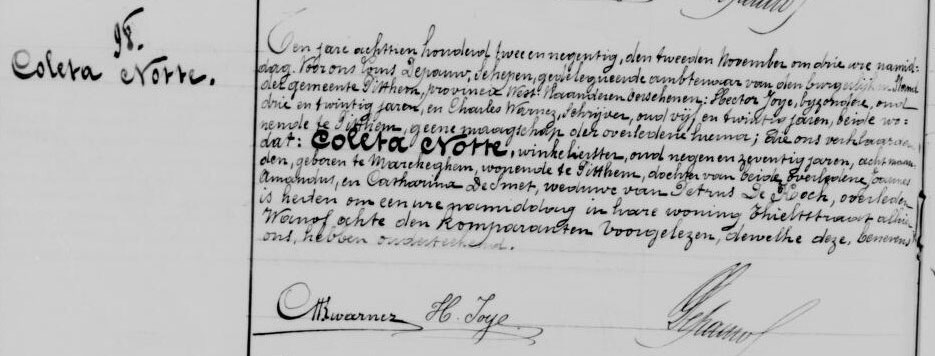 98.
Coleta Notte.
Ten jare achttien honderd twee en negentig, den tweeden November om drie ure namid:
dag. Voor ons Louis Depauw, Schepen, gedelegueerde ambtenaar van den burgerlijken Stand
der gemeente Pitthem, provincie West Vlaanderen verschenen: Hector Joye, byzondere, oud
drie en twintig jaren, en Charles Warnez, schrijver, oud vijf en twintig jaren, beide wo:
nende te Pitthem, geene maagschap der overledene hierna; die ons verklaar
dat: Coleta Notte, winkelierster, oud negen en zeventig jaren, acht maan
den, geboren te Marckeghem, wonende te Pitthem, dochter van beide overledene Joannes
Amandus, en Catharina De Smet, weduwe van Petrus De Kock, overleden
is heden om een ure namiddag in hare woning Thieltstraat alhier
Wanof achte den komparanten voorgelezen, dewelke deze, benevens
ons, hebben onderteekend.
Ch Warnez H. Joye